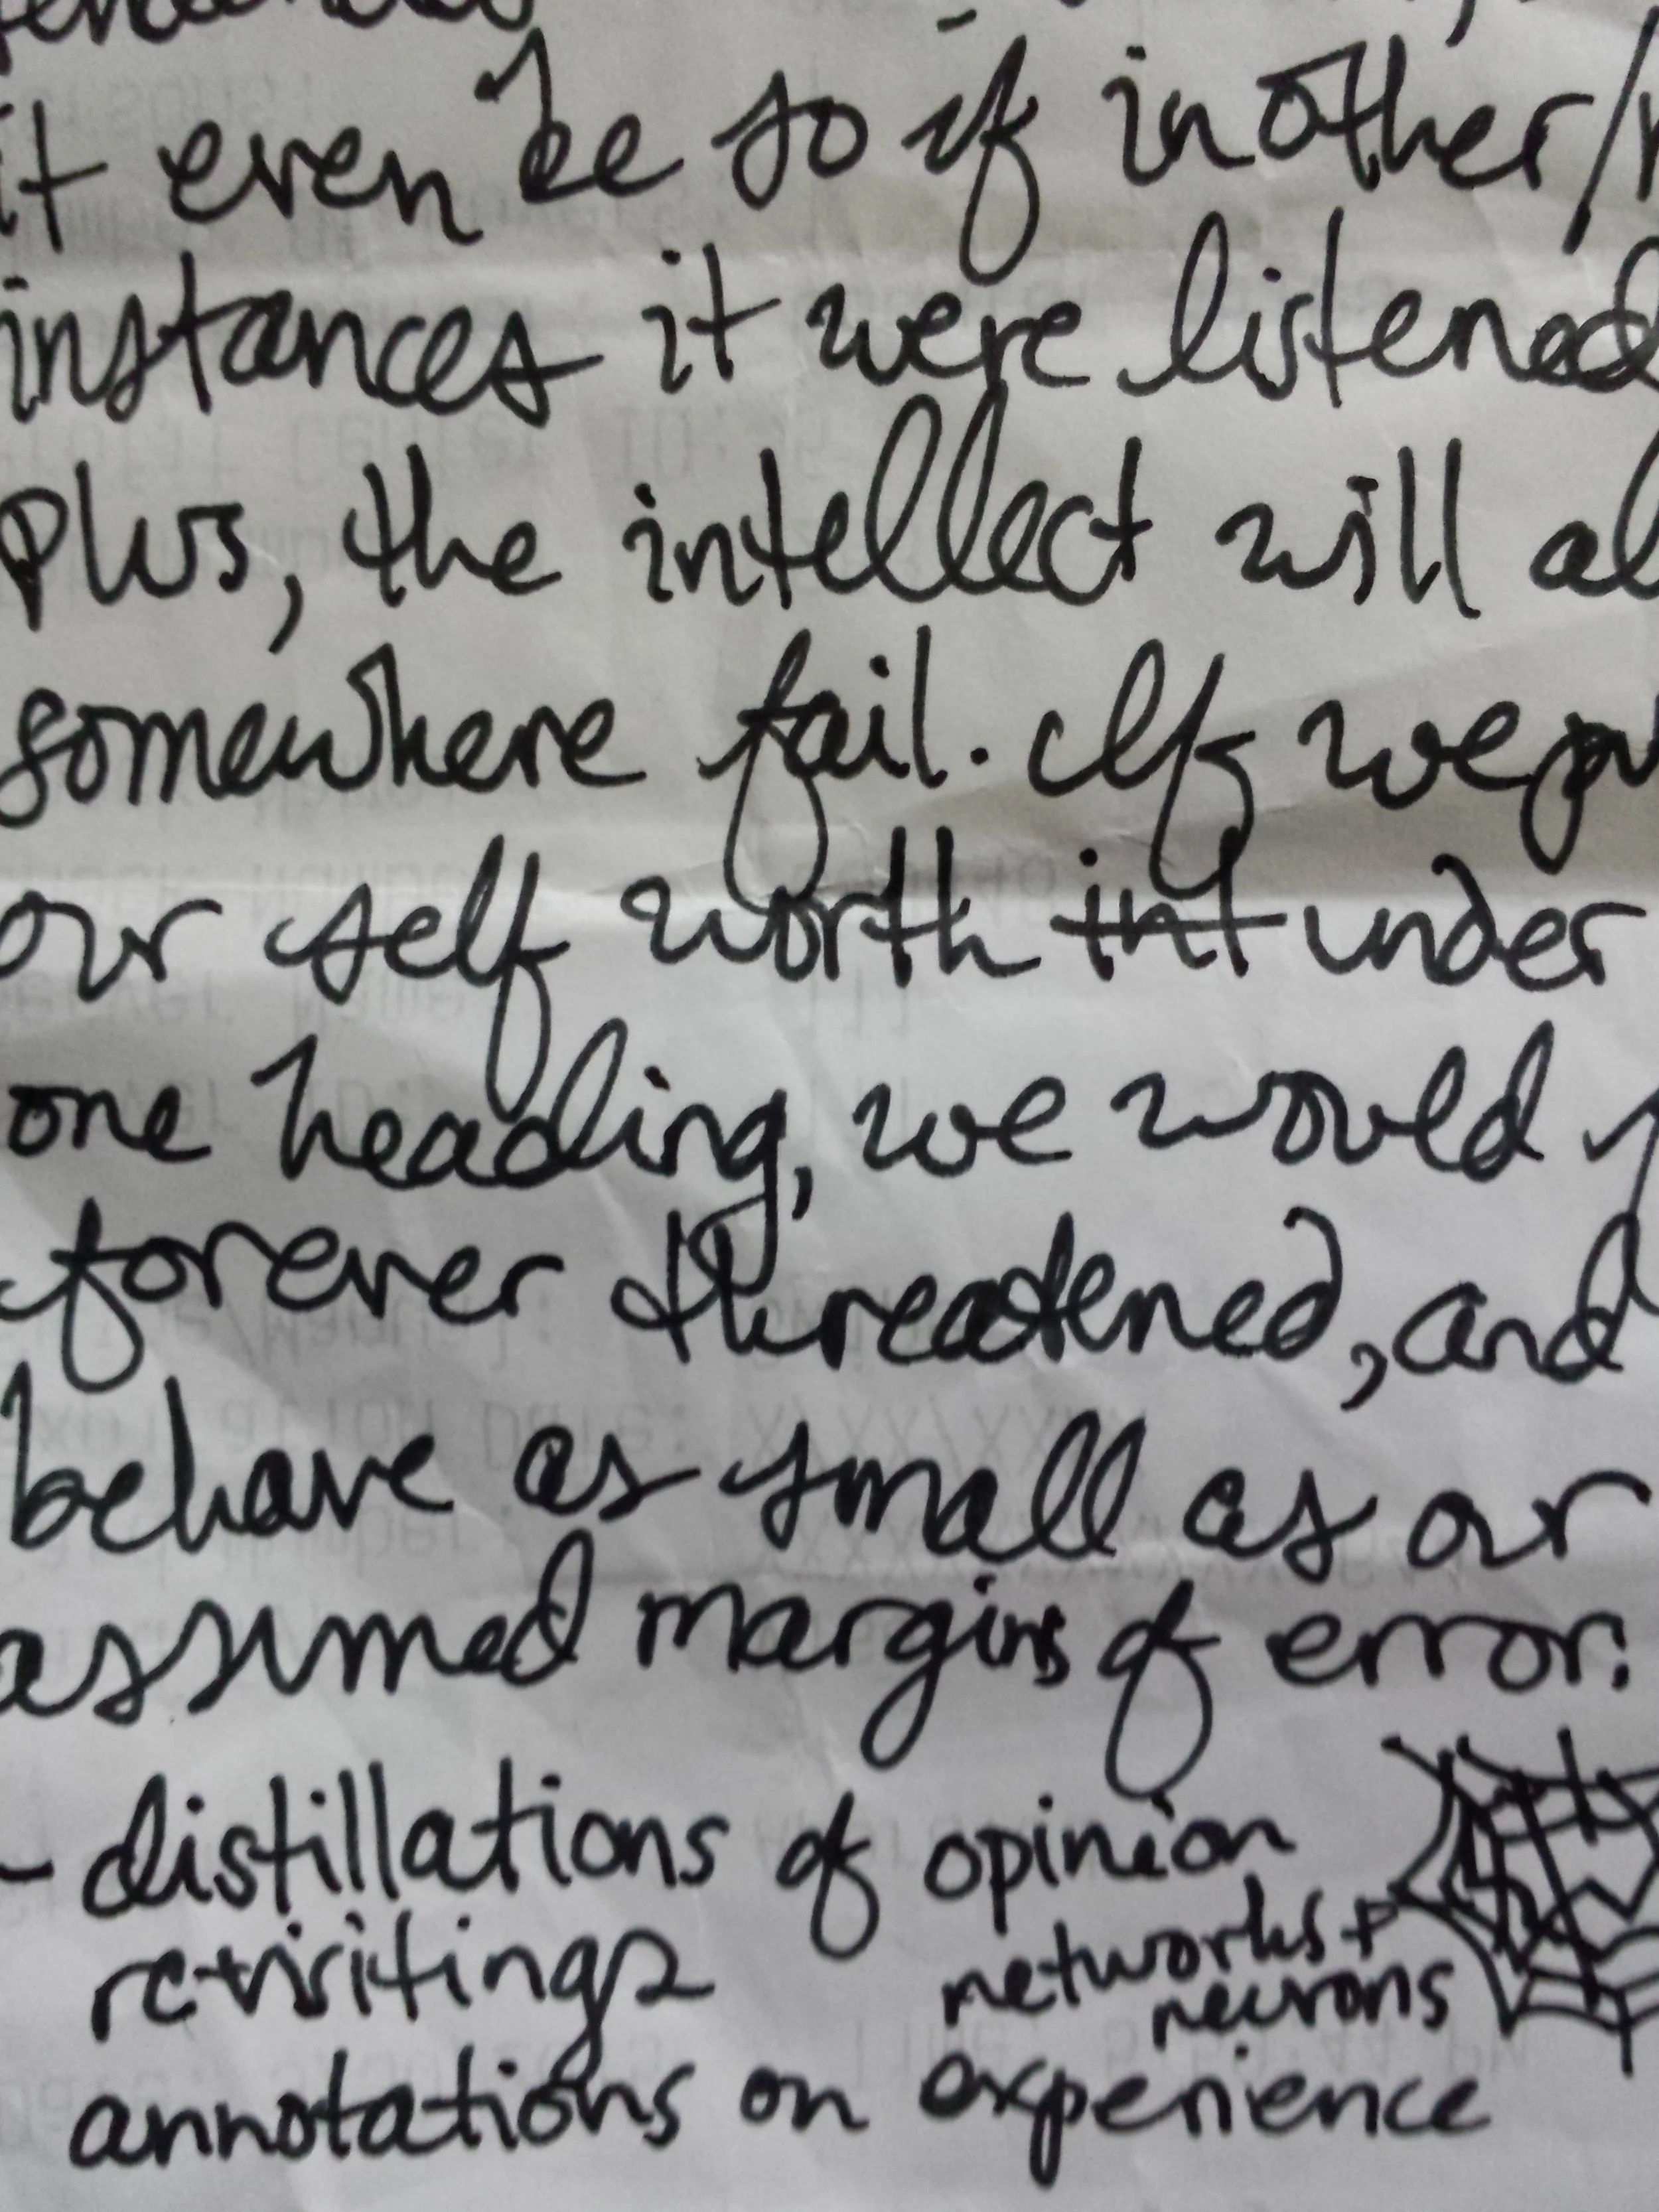 it even be so if in other/
instances it were listened
plus, the intellect will al
somewhere fail. If we pu
our self worth int under
one heading, we would
forever threatened, and
behave as small as our
assumed margins of error.
- distillations of opinion
re-visitings networks +
neurons
annotations on experience